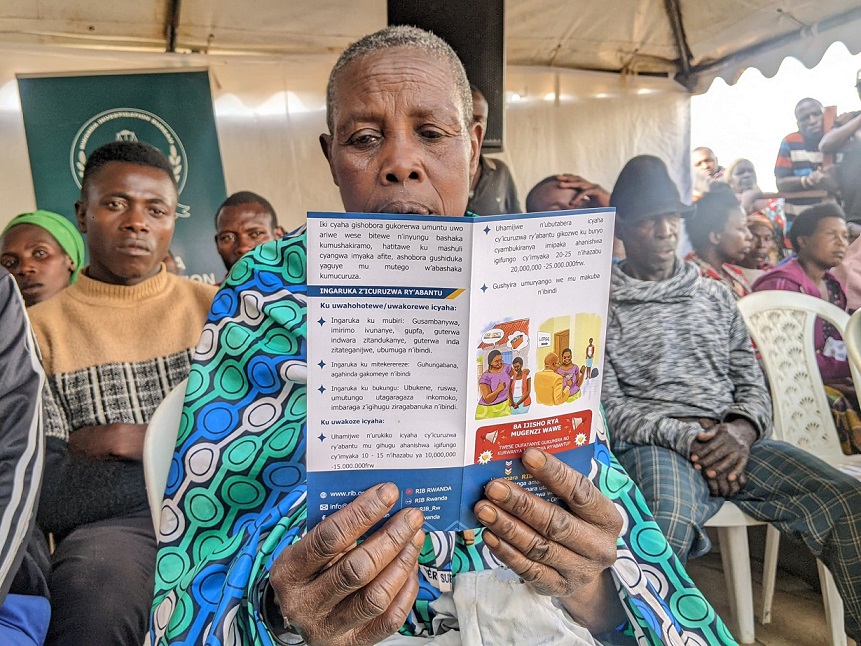 RWANDA INVESTIGATION BUREAU
Iki cyaha gishobora gukorerwa umuntu uwo
ariwe wese bitewe n'inyungu bashaka
kumushakiramo, hatitawe ku mashuli
cyangwa imyaka afite, ashobora gushiduka
yaguye mu mutego w'abashaka
kumucuruza.
INGARUKA Z'ICURUZWA RY'ABANTU
Ku uwahohotewe/uwakorewe icyaha:
Ingaruka ku mubiri: Gusambanywa,
imirimo ivunanye, gupfa, guterwa
indwara zitandukanye, guterwa inda
zitateganijwe, ubumuga n'ibindi.
Ingaruka ku mitekerereze: Guhungabana,
agahinda gakomeye n'ibindi
Ingaruka ku bukungu: Ubukene, ruswa,
umutungo utagaragaza inkomoko,
imbaraga z'igihugu ziragabanuka n'ibindi.
Ku uwakoze icyaha:
Uhamijwe n'urukiko icyaha cy'icuruzwa
ry'abantu mu gihugu ahanishwa igifungo
cy'imyaka 10 - 15 n'ihazabu ya 10,000,000
-15.000.000frw.
www.rib.
info@
RIB RWANDA
RIB Rwanda
RIB_Rw
Uhamijwe n'ubutabera icyaha
cy'icuruzwa ry'abantu gikozwe ku buryo
cyambukiranya imipaka ahanishwa
igifungo cy'imyaka 20-25 n'ihazabu ya
20,000,000 -25.000.000frw.
Gushyira umuryango we mu makuba
n'ibindi
BA IJISHO RYA
MUGENZI WAWE
TWESE DUFATANYE GUKUMIRA NO
KURWANYA